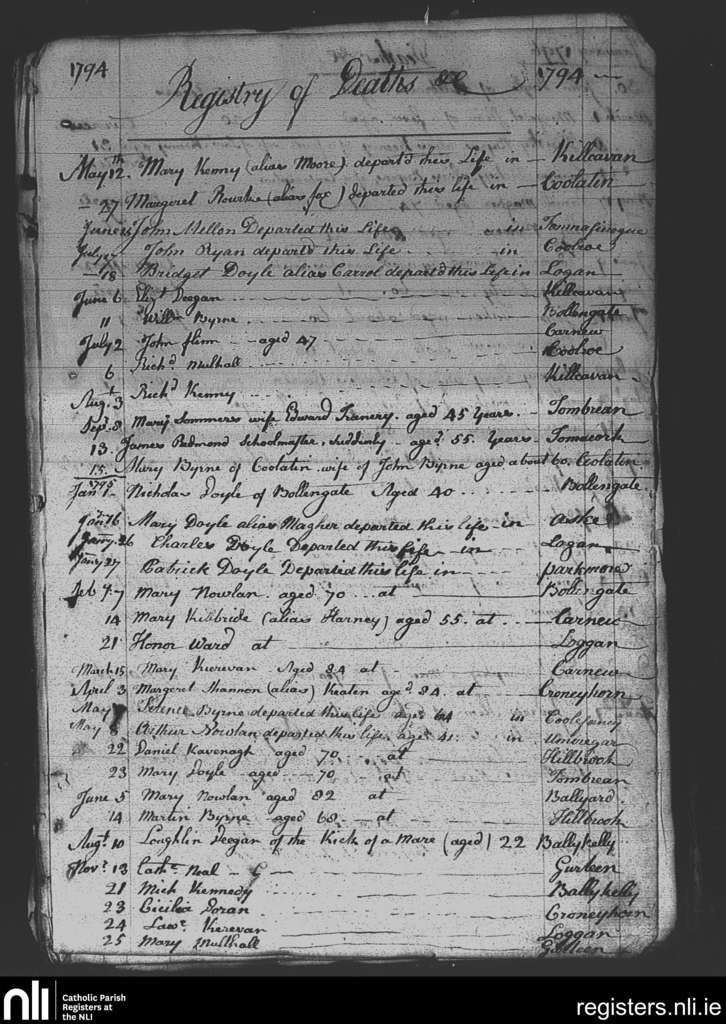 1794 Registry of Deaths &c 1794
May 12th Mary Kenny (alias Moore) depart'd this Life in Killcavan
27 Margeret Rourke (alias fox) departed this life in Coolatin
June John Mellon Departed this Life in Tomnafinogue
July John Ryan depart'd this Life in Coolroe
18 Bridget Doyle alias Carrol depart'd this Life in Logan
June 6 Eliz.t Deegan Killcavan
11 Will.m Byrne Bollengate
July 2 John flinn aged 47 Carnew
6 Rich.d Mulhall Coolroe
Aug.t 3 Rich.d Kenny Killcavan
Sep.r 8 Mary Sommers wife Edward aged 45 Years. Tombrean
13 James Redmond Schoolmaster, Suddenly aged 55 Years Tomacork
15. Mary Byrne of Coolatin wife of John Byrne aged about 60. Coolatin
1795
Jan.y 1 Nicholas Doyle of Bollengate Aged 40 Bollengate
Jan.y 16 Mary Doyle alias Magher departed this life in
26 Charles Doyle Departed this life in Logan
27 Patrick Doyle Departed this life in parkmore
Feb.y 7 Mary Nowlan aged 70 at Bollengate
14 Mary Kilbride (alias Harney) aged 55. at Carnew
21 Honor Ward at Loggan
March 15 Mary Kierevan Aged 84 at Carnew
April 3 Margeret Shannon (alias) Keaten aged 84. at Croneyhorn
May Byrne departed this life aged 64 in
May 8 Arthur Nowlan departed this life aged 41 in Umrregar
22 Daniel Kavenagh aged 70 at Hillbrook
23 Mary Doyle aged 70 at Tombrean
June 5 Mary Nowlan aged 82 at Ballyard
14 Martin Byrne aged 68 at Hillbrook
Augt 10 Loughlin Deegan of the Kick of a Mare (aged) 22 Ballykelly
Nov.r 13 Cath.n Neal Gurteen
21 Mick Kennedy Ballykelly
23 Cicilia Doran Croneyhorn
24 Law.e Kierevan Loggan
25 Mary Mulhall Gurteen
nli
Catholic Parish
Registers at
the NLI
registers.nli.ie